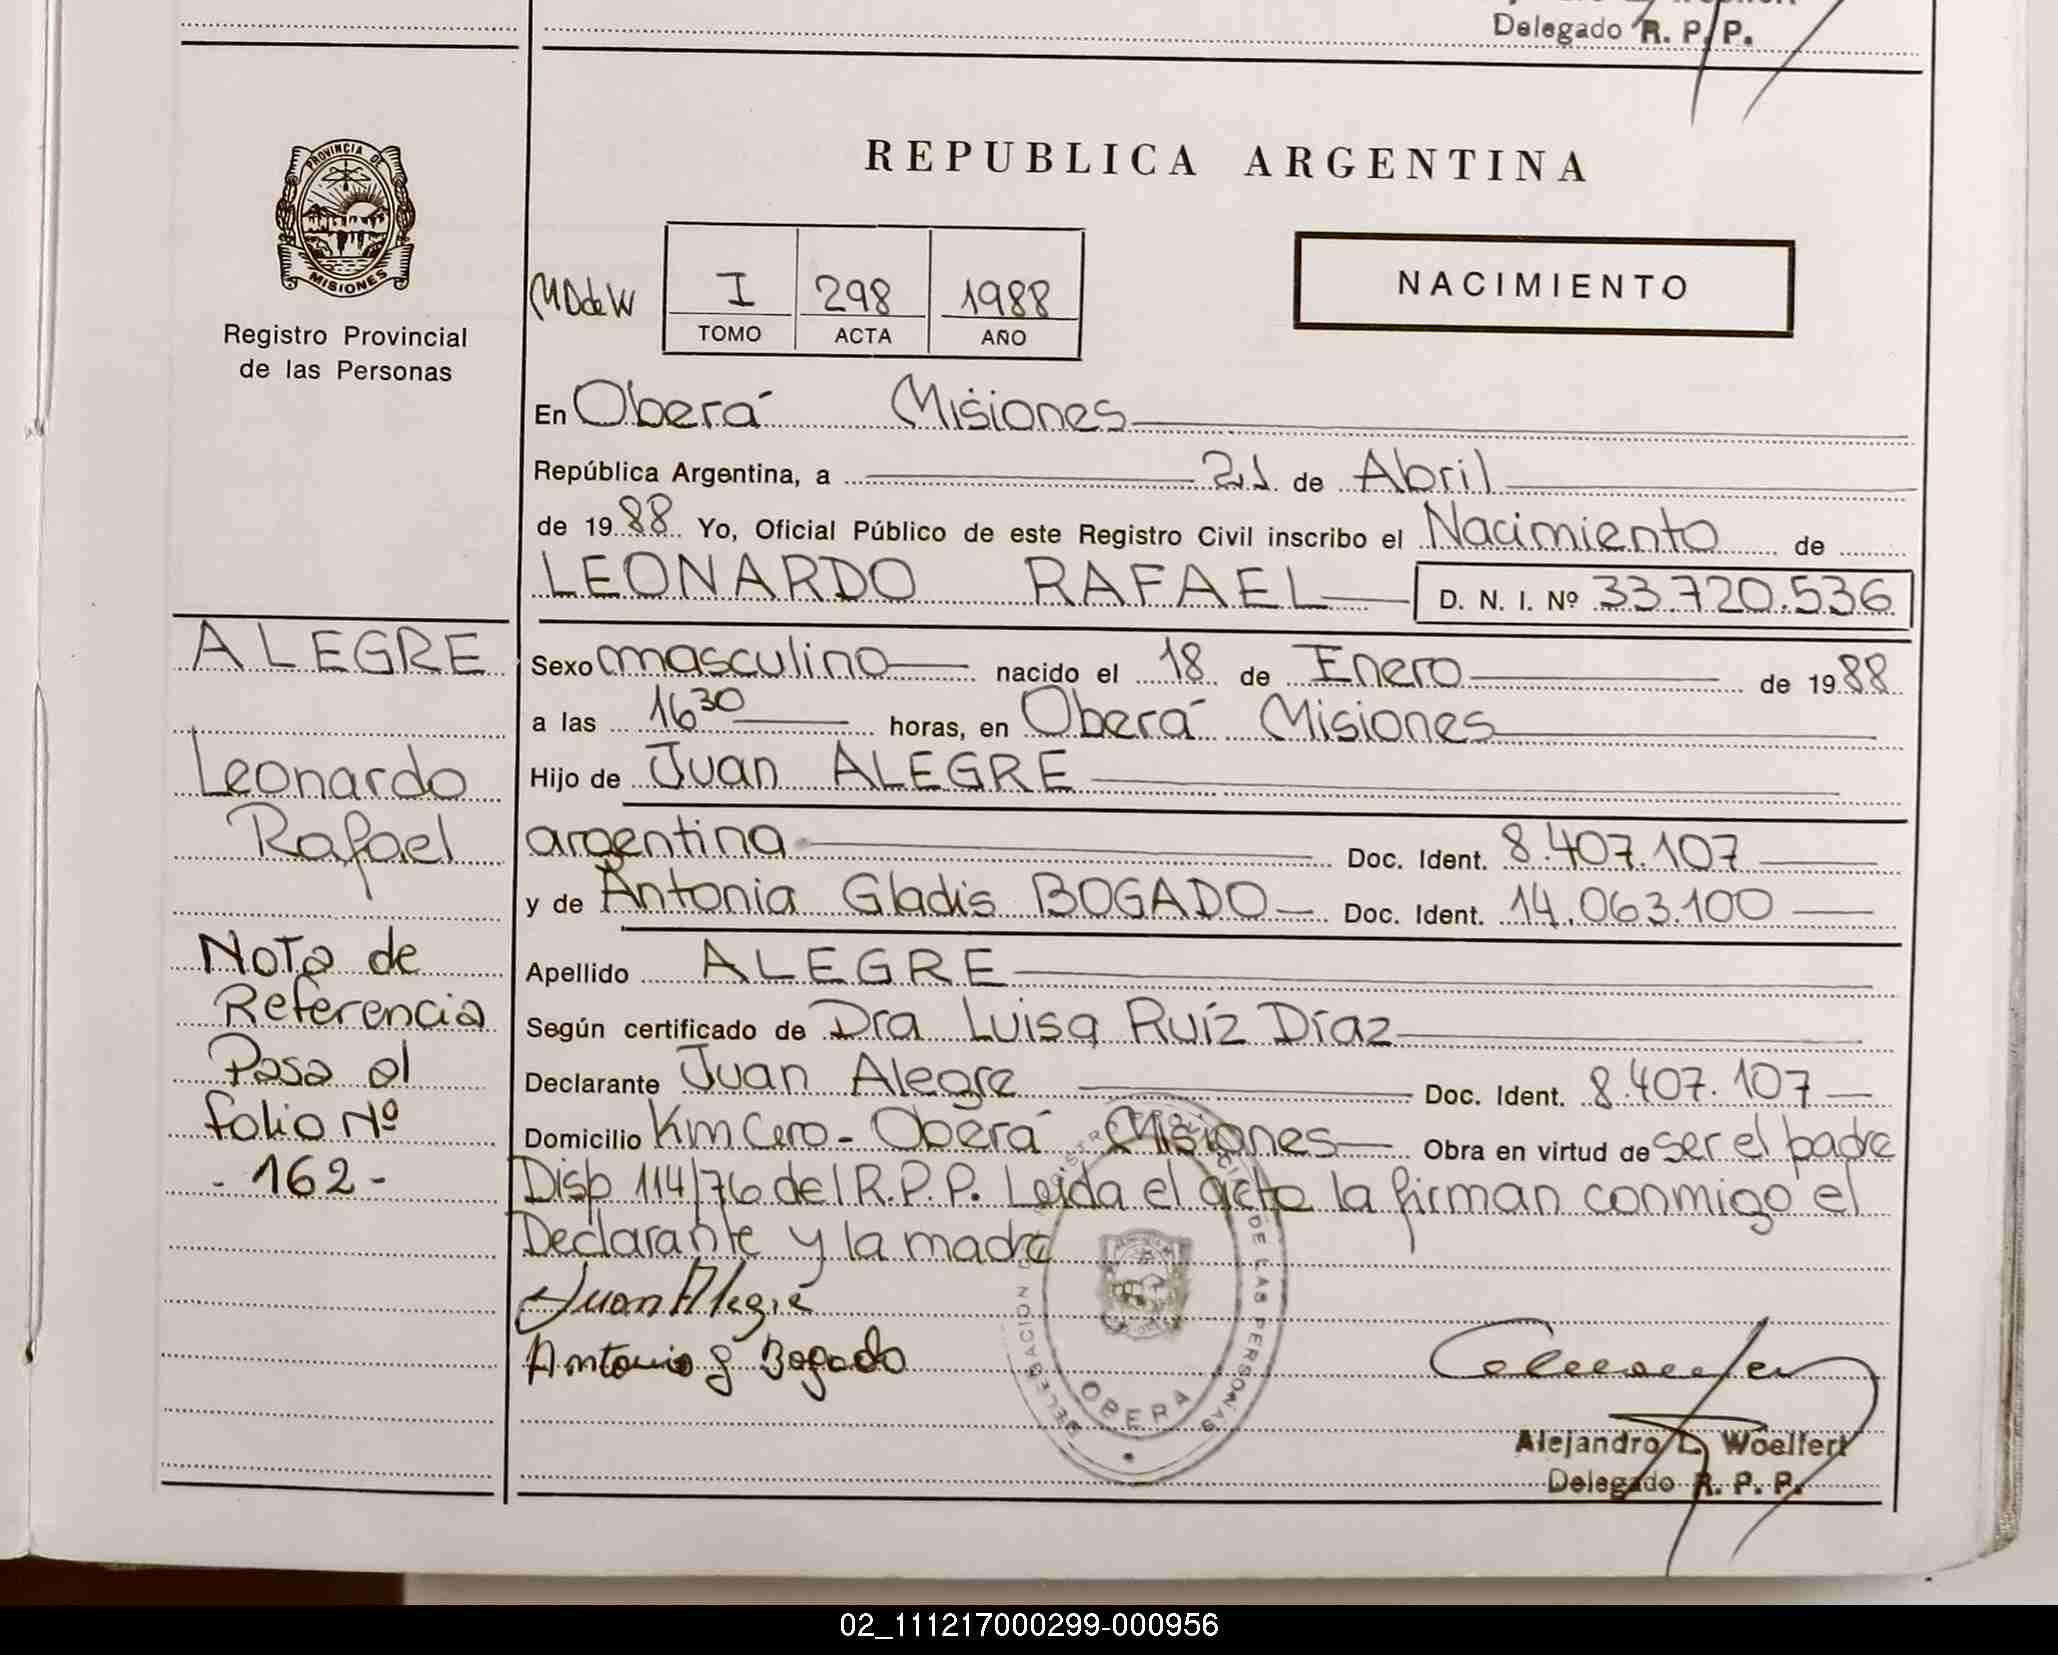 Delegado R. P. P.
PROVINCIA DE
MISIONES
Registro Provincial
de las Personas
REPUBLICA ARGENTINA
NACIMIENTO
MDdeW
I 298 1988
TOMO ACTA AÑO
En Oberá Misiones
República Argentina, a 21 de Abril
de 1988 Yo, Oficial Público de este Registro Civil inscribo el Nacimiento de
LEONARDO RAFAEL D. N. I. Nº 33.720.536
ALEGRE
Leonardo
Rafael
Nota de
Referencia
Pasa al
folio Nº
- 162 -
Sexo masculino nacido el 18 de Enero de 1988
a las 16 30 horas, en Oberá Misiones
Hijo de Juan ALEGRE
argentina Doc. Ident. 8.407.107
y de Antonia Gladis BOGADO Doc. Ident. 14.063.100
Apellido ALEGRE
Según certificado de Dra Luisa Ruíz Díaz
Declarante Juan Alegre Doc. Ident. 8.407.107
Domicilio Km Cero - Oberá Misiones Obra en virtud de ser el padre
Disp 114/76 del R.P.P. Leida el acto la firman conmigo el
Declarante y la madre
Juan Alegre
Antonia g Bogado
DE LAS PERSONAS
OBERA
Alejandro L. Woelfert
Delegado R. P. P.
02_111217000299-000956